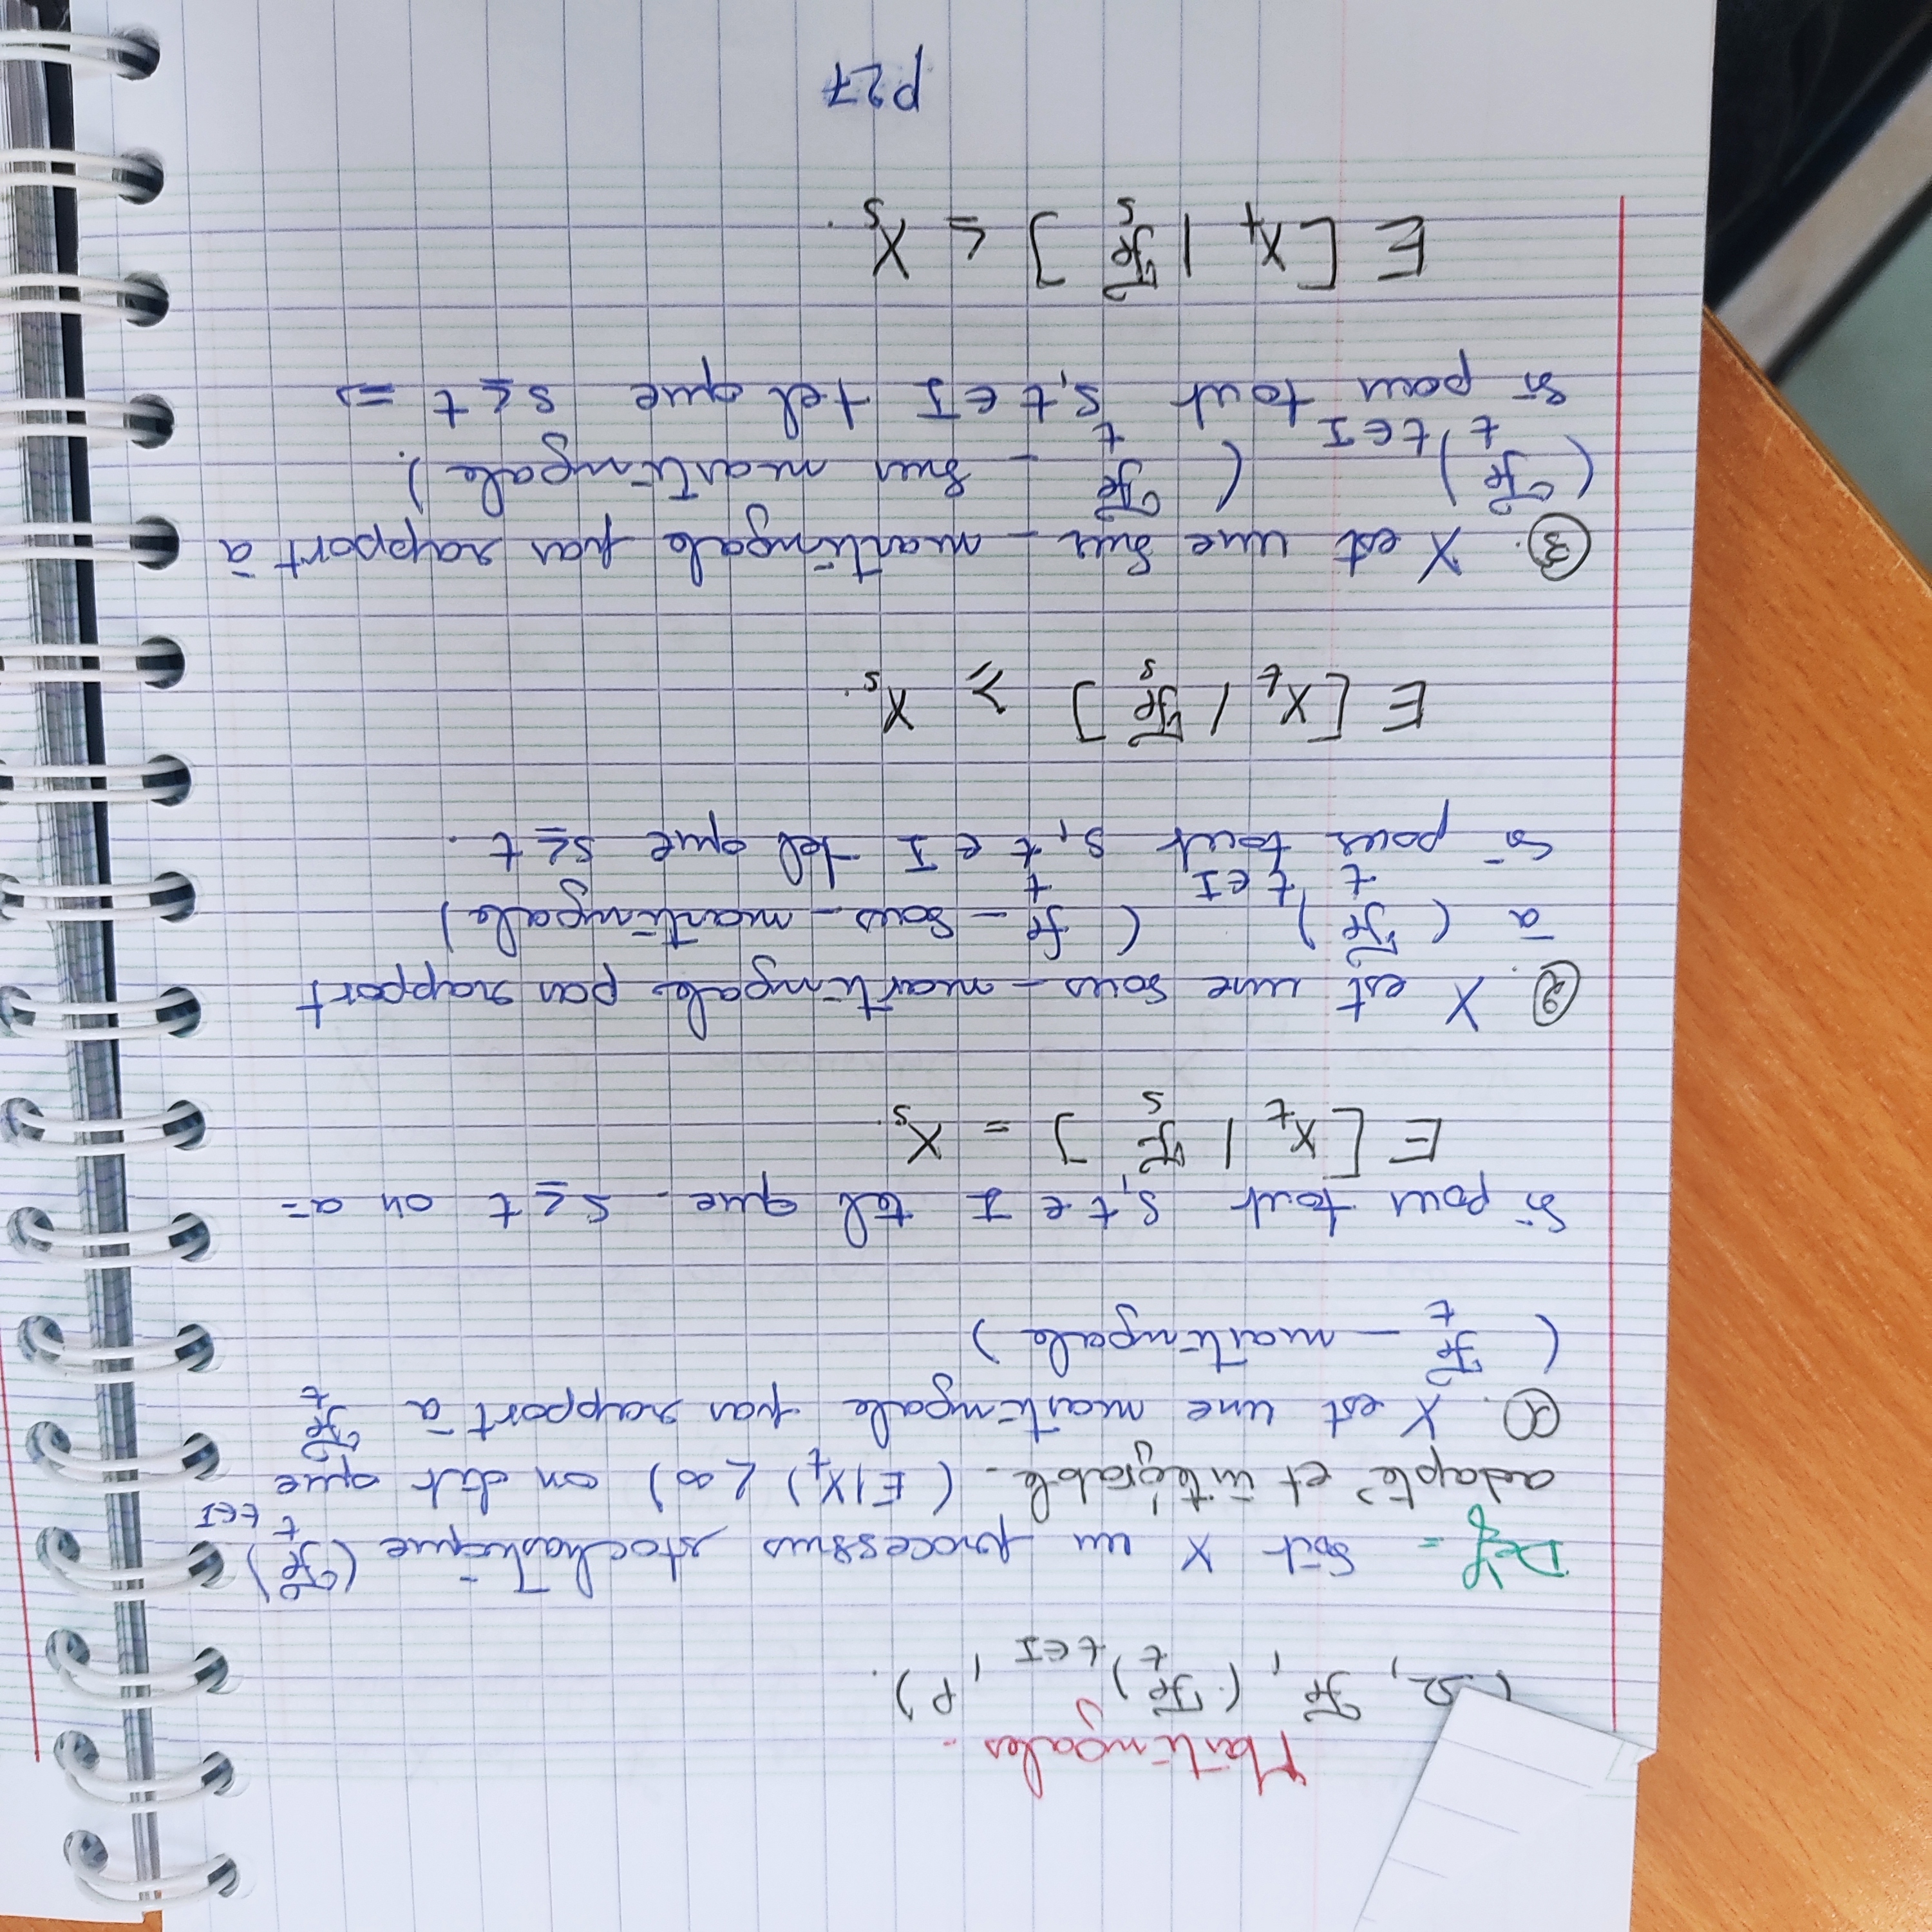 Martingales.
(Ω, ℱ, (ℱ_t)_{t∈I}, P).
Déf = Soit X un processus stochastique (ℱ_t)_{t∈I}
adapté et intégrable. (E|X_t) < ∞) on dit que
①. X est une martingale par rapport à ℱ_t
(ℱ_t - martingale)
Si pour tout s, t ∈ I tel que s ≤ t on a =
E [X_t | ℱ_s] = X_s.
②. X est une sous-martingale par rapport
à (ℱ_t)_{t∈I} (ℱ_t - sous-martingale)
Si pour tout s, t ∈ I tel que s ≤ t.
E [X_t / ℱ_s] ⩾ X_s.
③. X est une sur-martingale par rapport à
(ℱ_t)_{t∈I} (ℱ_t - sur martingale).
Si pour tout s, t ∈ I tel que s ≤ t ⇒
E [X_t | ℱ_s] ≤ X_s.
P27